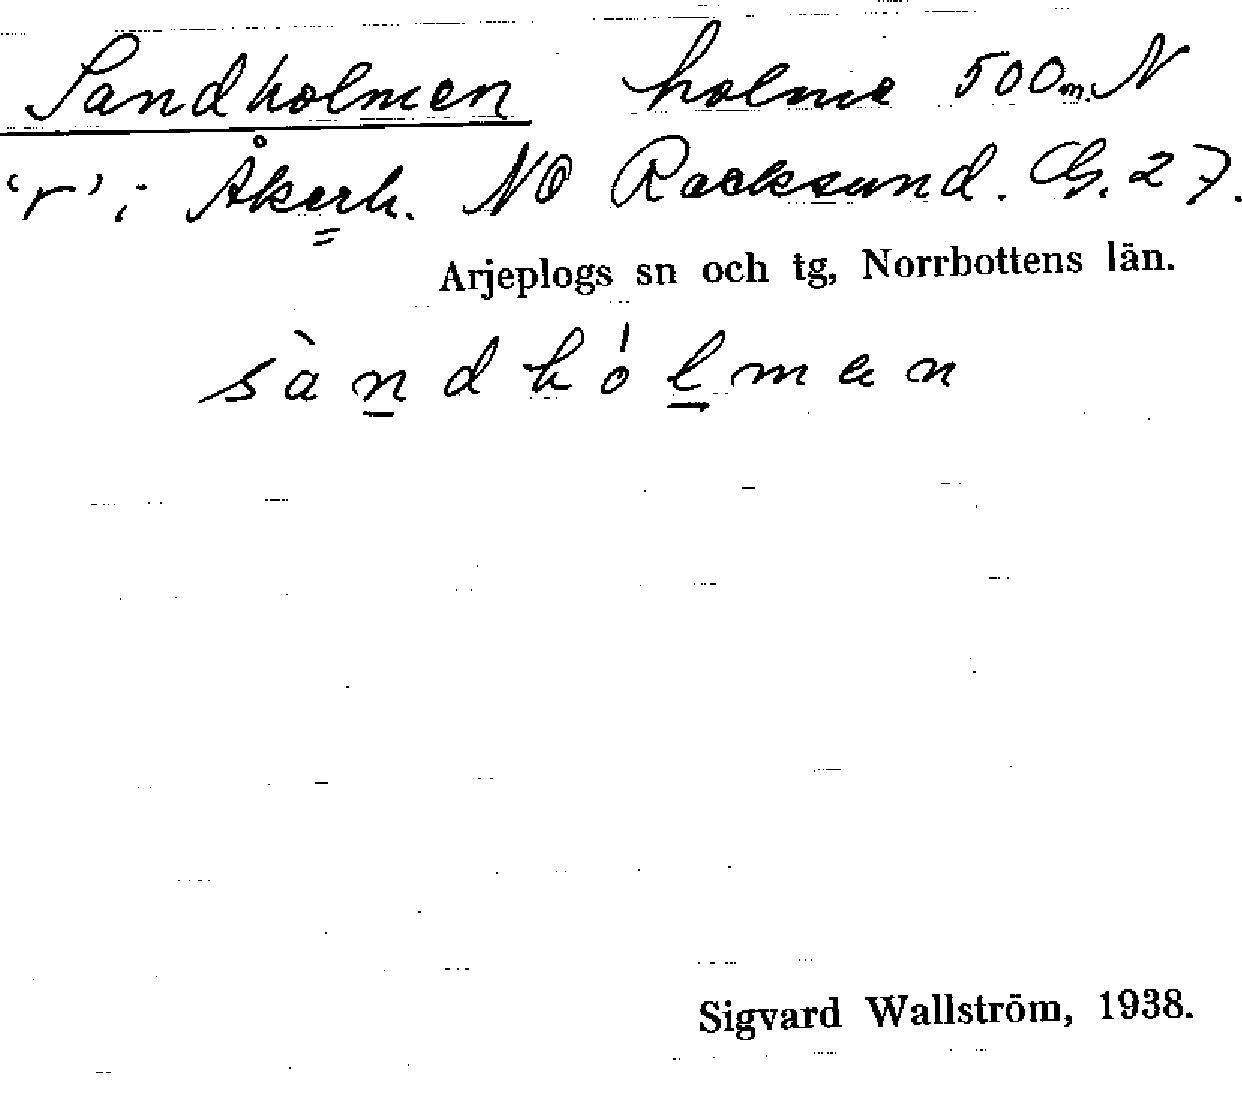 Sandholmen holme 500 m. N
'r' i Åkerh. NO Racksund. G. 27.
Arjeplogs sn och tg, Norrbottens län.
sàndhólmen
Sigvard Wallström, 1938.